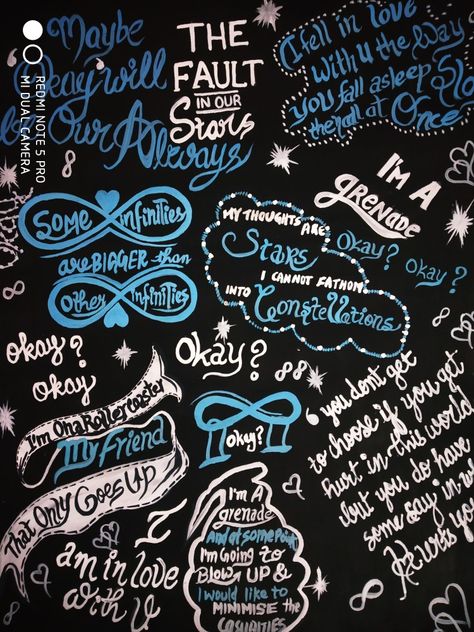 REDMI NOTE 5 PRO
MI DUAL CAMERA
Maybe
'Okay' will
be Our
Always
THE
FAULT
IN OUR
Stars
I fell in love
With U the Way
you fall asleep
the all at
Once
I'M A
grenade
Okay? Okay?
Some infinities
are BIGGER than
Other Infinities
MY THOUGHTS ARE
Stars
I CANNOT FATHOM
INTO
Constellations
okay?
okay
Okay?
I'm On a Rollercoaster
My Friend
That Only Goes UP
okay?
I
am in love
with U
I'm A
grenade
And at some Point
I'm Going to
BLOW UP &
I would like to
MINIMISE the
CASUALTIES
you dont get
to choose if you get
hurt in this world
but you do have
some say in